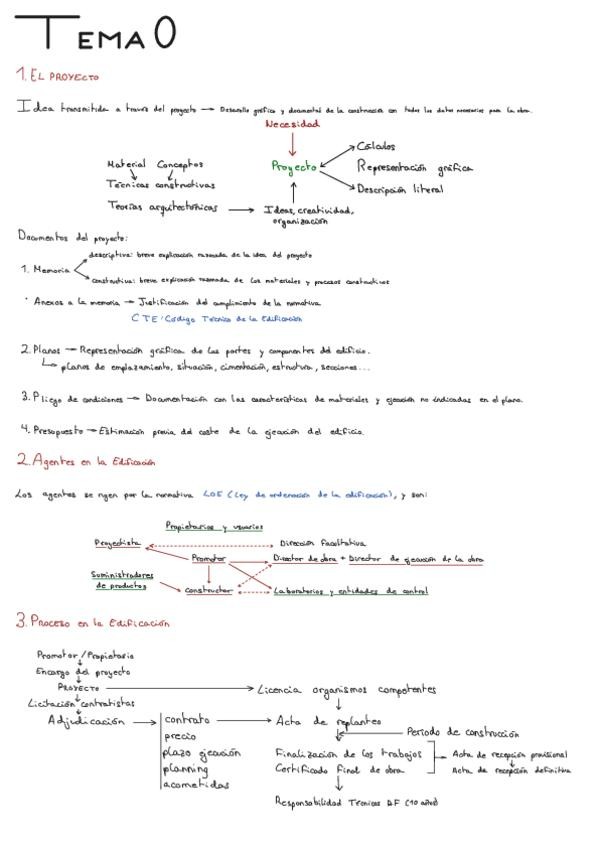 TEMA 0
1. EL PROYECTO
Idea transmitida a través del proyecto → Desarrollo gráfico y documental de la construcción con todos los datos necesarios para la obra.
Necesidad
Material Conceptos
Técnicas constructivas
Teorías arquitectónicas
Proyecto
Cálculos
Representación gráfica
Descripción literal
Ideas, creatividad,
organización
Documentos del proyecto:
1. Memoria
descriptiva: breve explicación razonada de la idea del proyecto
constructiva: breve explicación razonada de los materiales y procesos constructivos
· Anexos a la memoria → Justificación del cumplimiento de la normativa
CTE: Código Técnico de la Edificación
2. Planos → Representación gráfica de las partes y componentes del edificio.
planos de emplazamiento, situación, cimentación, estructura, secciones...
3. Pliego de condiciones → Documentación con las características de materiales y ejecución no indicadas en el plano.
4. Presupuesto → Estimación previa del coste de la ejecución del edificio.
2. Agentes en la Edificación
Los agentes se rigen por la normativa LOE (Ley de ordenación de la edificación), y son:
Propietarios y usuarios
Proyectista
Dirección facultativa
Promotor
Director de obra + Director de ejecución de la obra
Suministradores
de productos
Constructor
Laboratorios y entidades de control
3. Proceso en la Edificación
Promotor / Propietario
Encargo del proyecto
PROYECTO → Licencia organismos competentes
Licitación contratistas
Adjudicación → contrato → Acta de replanteo
precio
plazo ejecución
planning
acometidas
Período de construcción
Finalización de los trabajos
Certificado Final de obra
Acta de recepción provisional
Acta de recepción definitiva
Responsabilidad Técnicos DF (10 años)